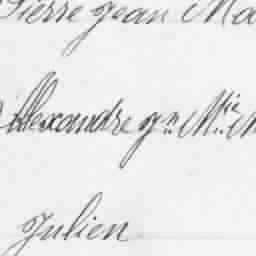 Pierre Jean Ma
Alexandre gn. Mie M
Julien